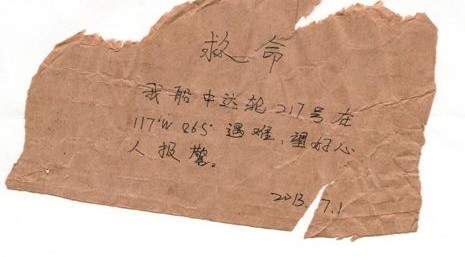 救命
我船中达轮217号在
117°W 265° 遇难,望好心
人报警。
2013.7.1